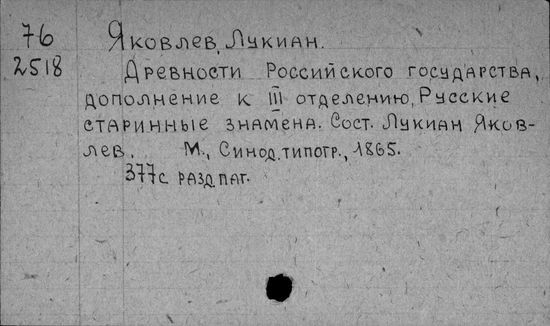 76
2518
Яковлев, Лукиан.
Древности Российского государства,
дополнение к III отделению, Русские
старинные знамена. Сост. Лукиан Яков-
лев. М., Синод. типогр., 1865.
377с разд. паг.